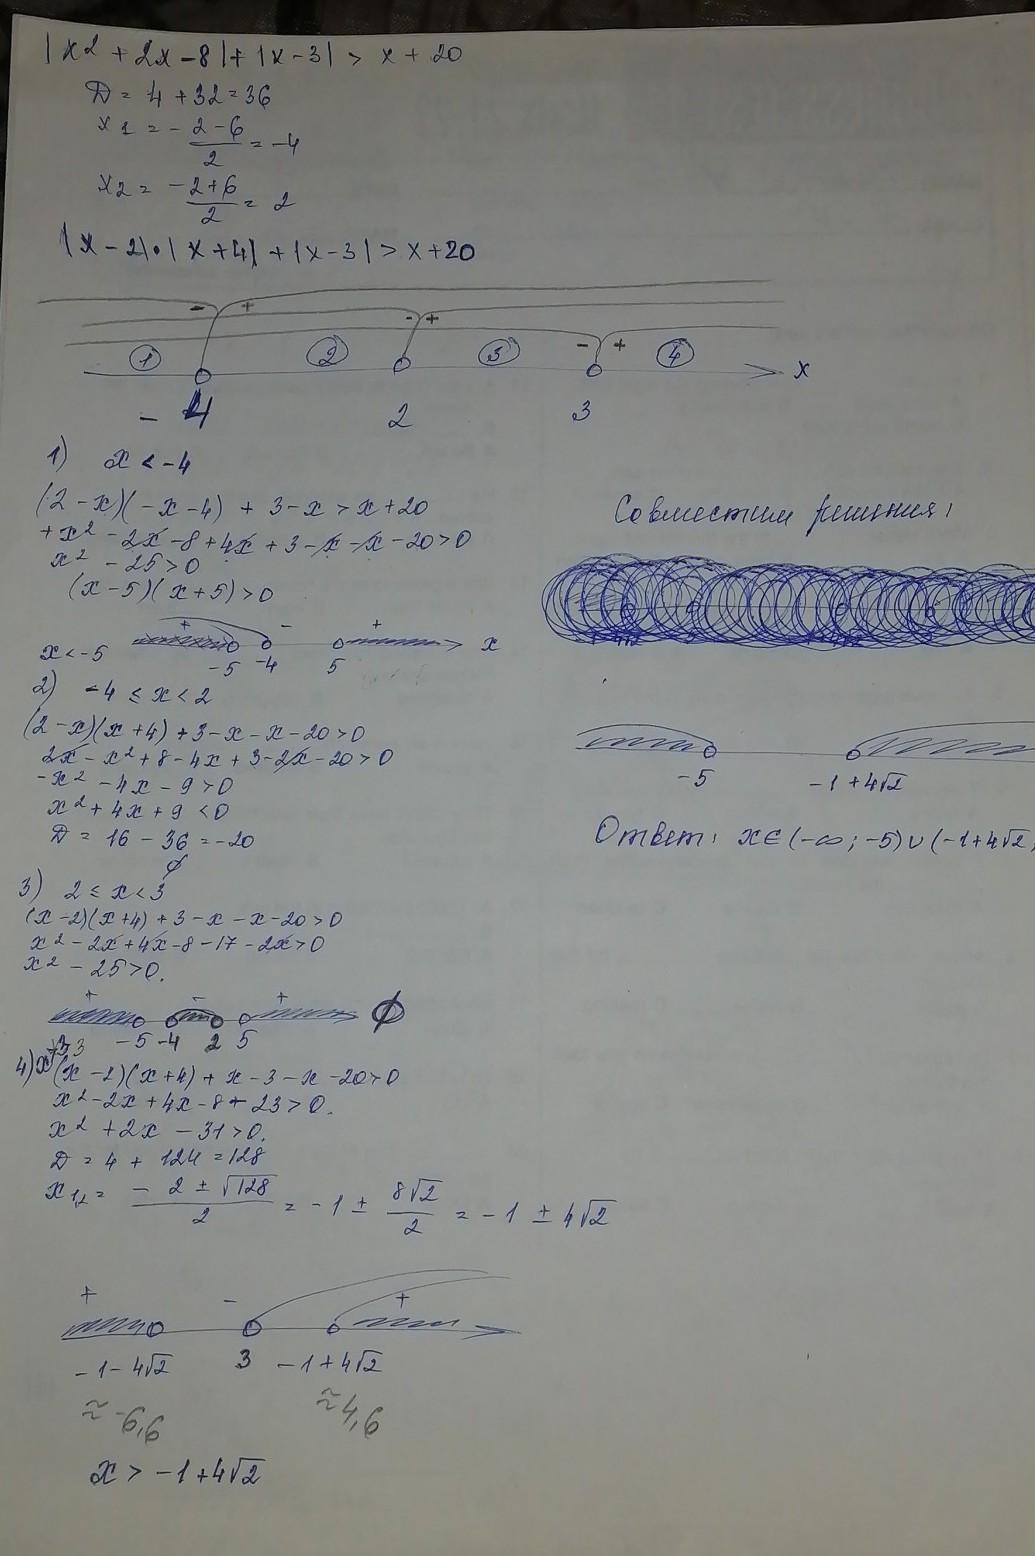 |x² + 2x - 8| + |x - 3| > x + 20
D = 4 + 32 = 36
x1 = -2-6/2 = -4
x2 = -2+6/2 = 2
|x - 2|•|x + 4| + |x - 3| > x + 20
- + - + - +
1 2 3 4 x
-4 2 3
1) x < -4
(2 - x)(-x - 4) + 3 - x > x + 20
+x² - 2x - 8 + 4x + 3 - x - x - 20 > 0
x² - 25 > 0
(x - 5)(x + 5) > 0
+ - +
x < -5 -5 -4 5 x
2) -4 ≤ x < 2
(2 - x)(x + 4) + 3 - x - x - 20 > 0
2x - x² + 8 - 4x + 3 - 2x - 20 > 0
-x² - 4x - 9 > 0
x² + 4x + 9 < 0
D = 16 - 36 = -20
∅
3) 2 ≤ x < 3
(x - 2)(x + 4) + 3 - x - x - 20 > 0
x² - 2x + 4x - 8 - 17 - 2x > 0
x² - 25 > 0.
+ - + ∅
-5 -4 2 5
4)
(x - 2)(x + 4) + x - 3 - x - 20 > 0
x² - 2x + 4x - 8 - 23 > 0.
x² + 2x - 31 > 0.
D = 4 + 124 = 128
x1,2 = -2 ± √128/2 = -1 ± 8√2/2 = -1 ± 4√2
+ - +
-1 - 4√2 3 -1 + 4√2
≈ -6,6 ≈ 4,6
x > -1 + 4√2
Совместим решения:
-5 -1 + 4√2
Ответ: x ∈ (-∞; -5) ∪ (-1 + 4√2